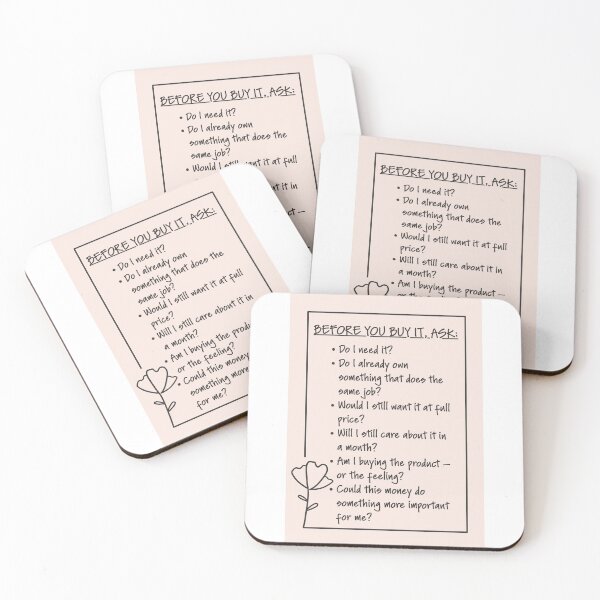 BEFORE YOU BUY IT, ASK:
• Do I need it?
• Do I already own
something that does the
same job?
• Would I still want it at full
it in
BEFORE YOU BUY IT, ASK:
• Do I need it?
• Do I already own
something that does the
same job?
• Would I still want it at full
price?
• Will I still care about it in
a month?
• Am I buying the product —
or the feeling?
BEFORE YOU BUY IT, ASK:
• Do I need it?
• Do I already own
something that does the
same job?
• Would I still want it at full
price?
• Will I still care about it in
a month?
• Am I buying the product
or the feeling?
• Could this money
something more
for me?
BEFORE YOU BUY IT, ASK:
• Do I need it?
• Do I already own
something that does the
same job?
• Would I still want it at full
price?
• Will I still care about it in
a month?
• Am I buying the product —
or the feeling?
• Could this money do
something more important
for me?